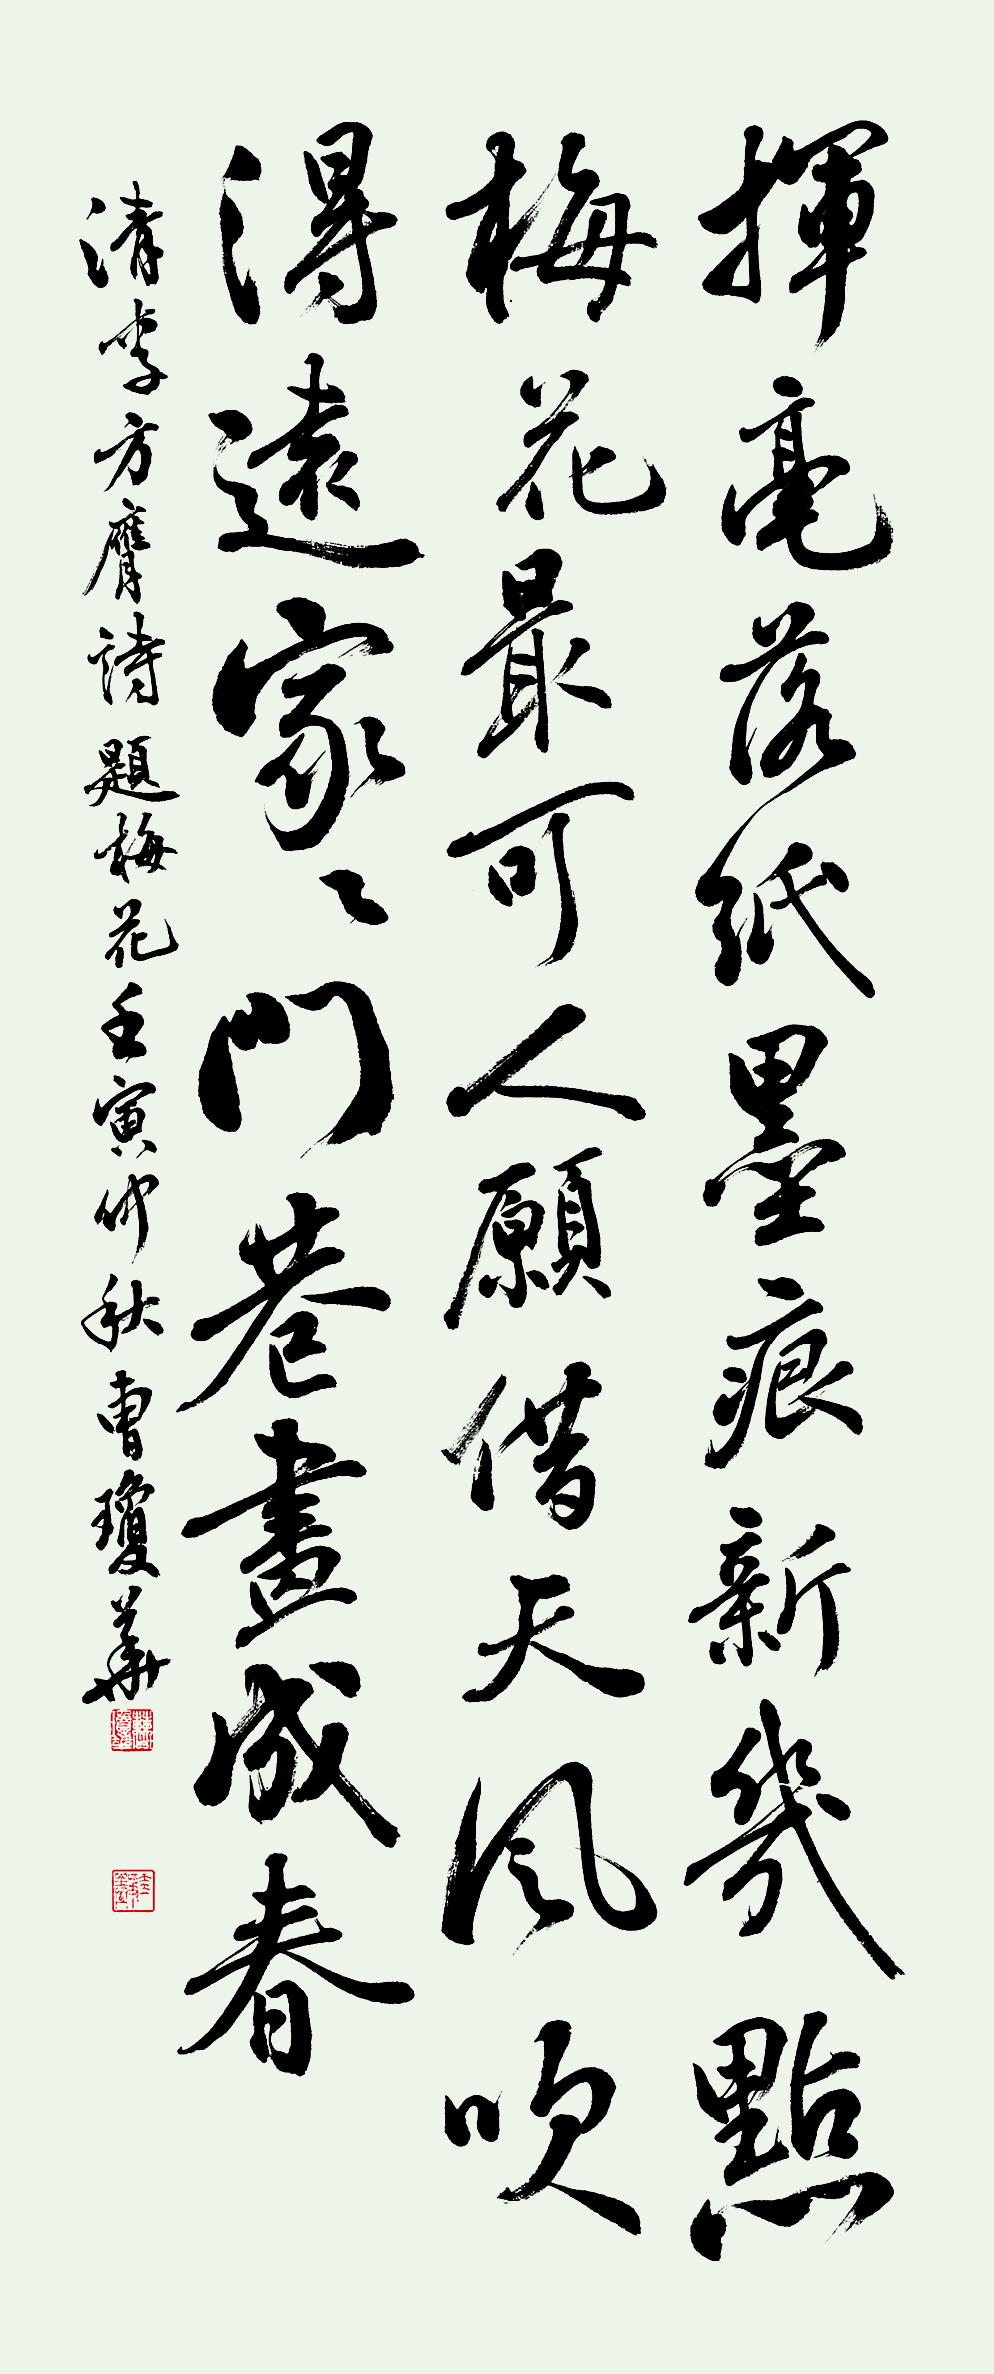 揮毫落紙墨痕新幾點
梅花最可人願借天風吹
得遠家〻門巷畫成春
清李方膺詩題梅花壬寅仲秋曹瓊華